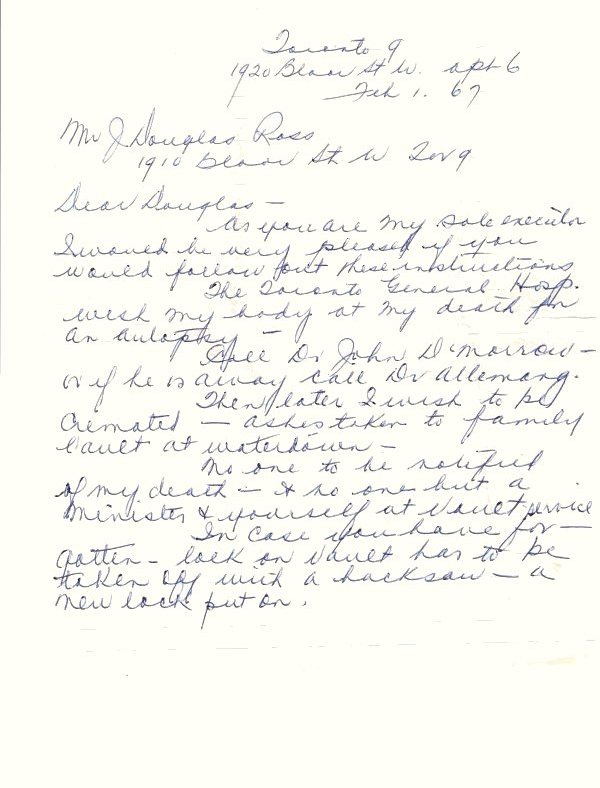 Toronto 9
1920 Bloor St W. apt 6
Feb 1. 67
Mr J Douglas Ross
1910 Bloor St W Tor 9
Dear Douglas —
As you are my sole executor
I would be very pleased if you
would follow out these instructions
The Toronto General Hosp.
wish my body at my death for
an autopsy —
Call Dr John D. Morrow —
or if he is away call Dr Allemang.
Then later I wish to be
cremated — ashes taken to family
vault at waterdown —
No one to be notified
of my death — & no one but a
minister & yourself at Vault service
In case you have for—
gotten — lock on vault has to be
taken off with a hacksaw — a
new lock put on.